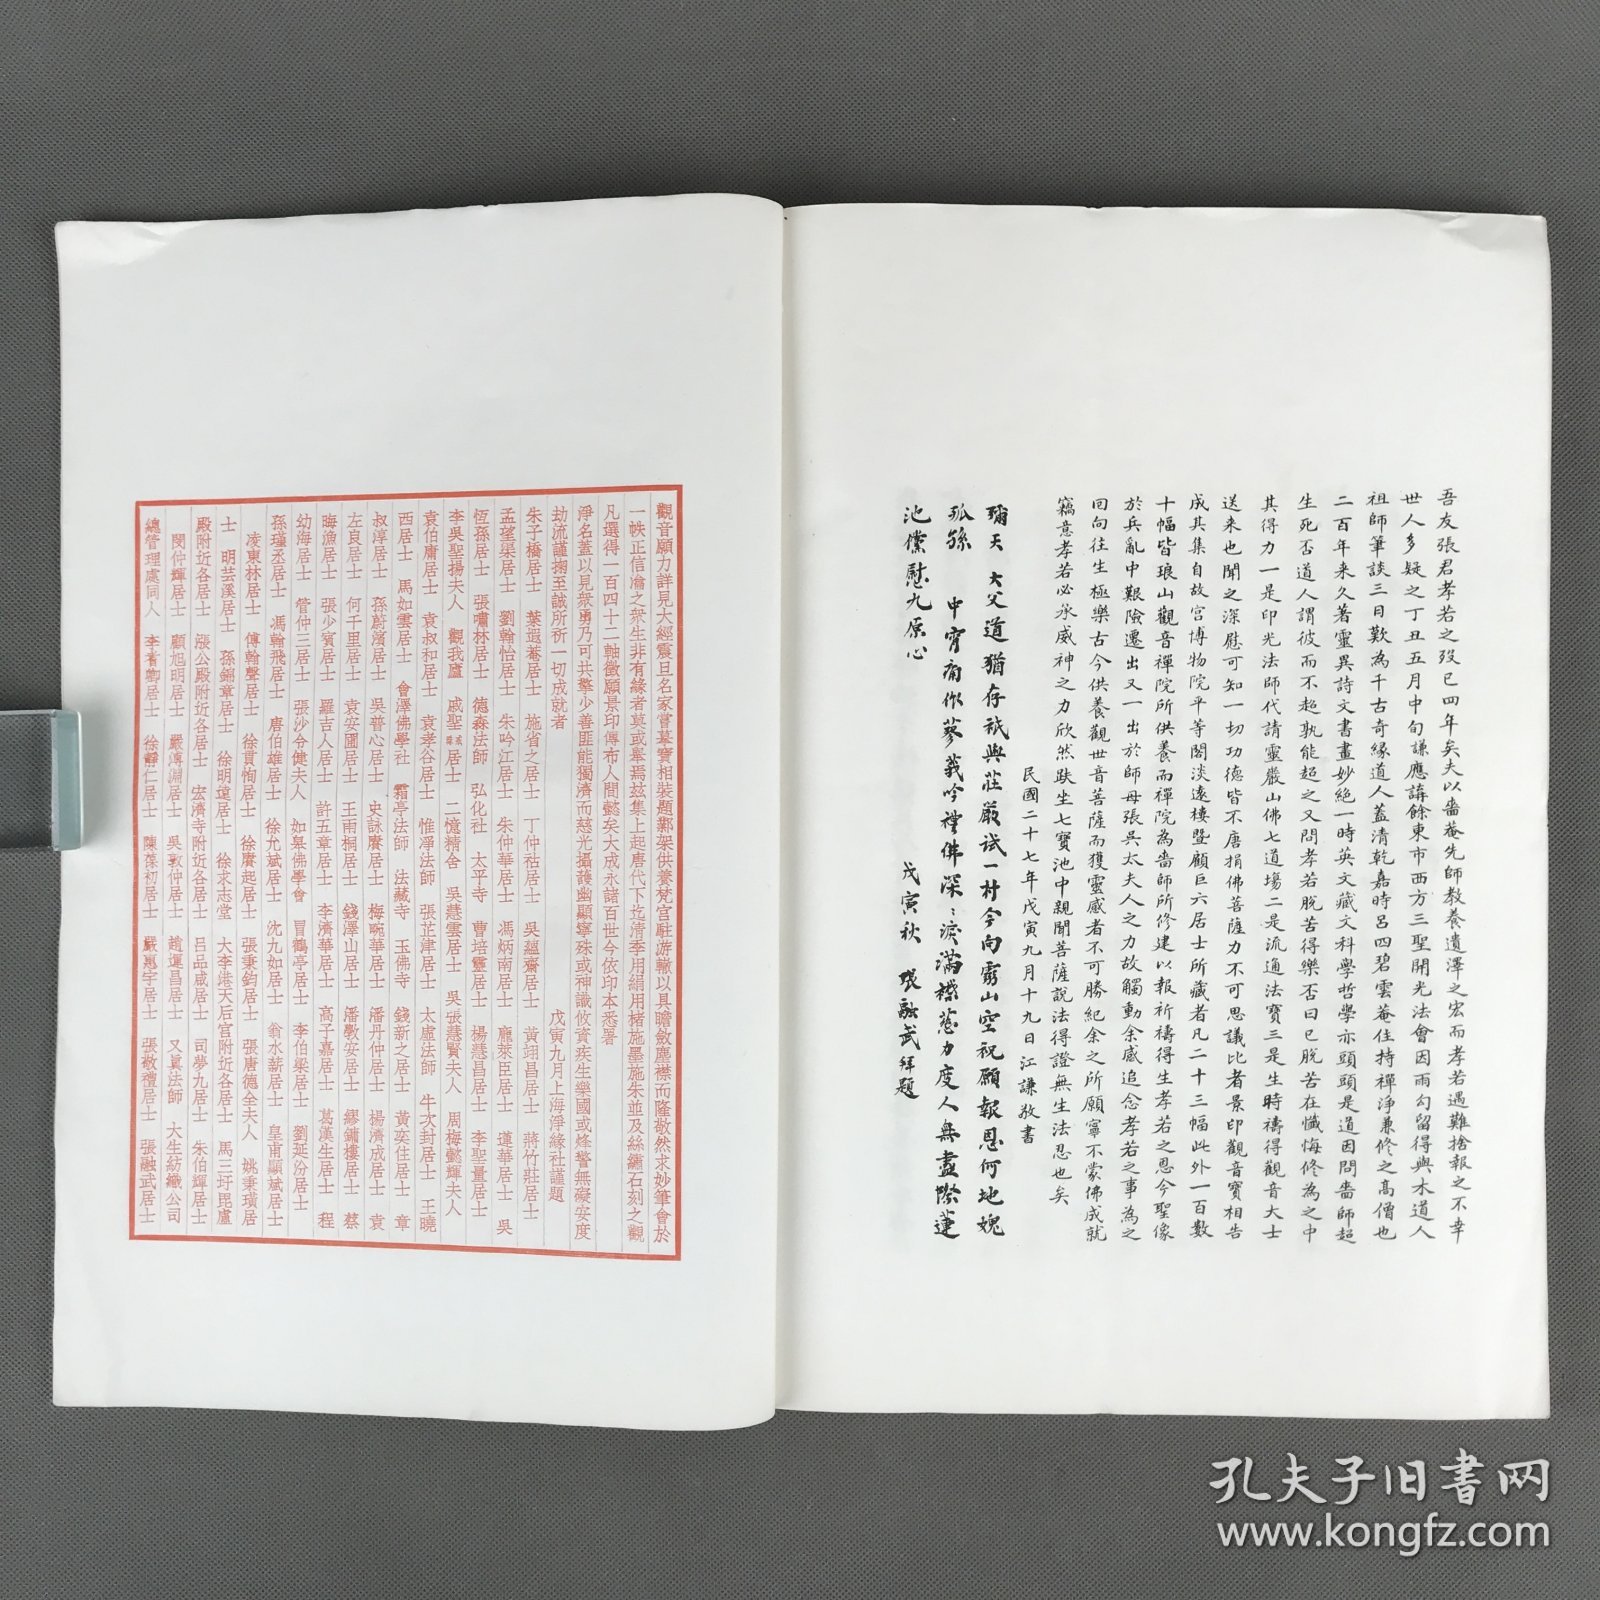 吾友張君孝若之歿已四年矣夫以嗇菴先師教養遺澤之宏而孝若遇難捨報之不幸
世人多疑之丁丑五月中旬謙應講餘東市西方三聖開光法會因雨勾留得與木道人
祖師筆談三日歎為千古奇緣道人蓋清乾嘉時呂四碧雲菴住持禪淨兼修之高僧也
二百年来久著靈異詩文書畫妙絕一時英文藏文科學哲學亦頭頭是道因問嗇師超
生死否道人謂彼而不超孰能超之又問孝若脫苦得樂否曰已脫苦在懺悔修為之中
其得力一是印光法師代請靈巖山佛七道場二是流通法寶三是生時禱得觀音大士
送来也聞之深慰可知一切功德皆不唐捐佛菩薩力不可思議比者景印觀音寶相告
成其集自故宮博物院平等閣淡遠樓暨顧巨六居士所藏者凡二十三幅此外一百數
十幅皆琅山觀音禪院所供養而禪院為嗇師所修建以報祈禱得生孝若之恩今聖像
於兵亂中艱險遷出又一出於師母張吳太夫人之力故觸動余感追念孝若之事為之
回向往生極樂古今供養觀世音菩薩而獲靈感者不可勝紀余之所願寧不蒙佛成就
竊意孝若必承威神之力欣然趺坐七寶池中親聞菩薩說法得證無生法忍也矣
民國二十七年戊寅九月十九日江謙敬書
彌天大父道猶存祇與莊嚴試一村今向靈山空祝願報恩何地媿
孤孫 中宵痛作蓼莪吟禮佛深深淚滿襟慈力度人無盡際蓮
池儻慰九原心
戊寅秋 張融武拜題
觀音願力詳見大經震旦名家嘗摹寶相裝題鄴架供養梵宮駐游轍以具瞻斂塵襟而隆敬然求妙筆會於
一帙正信瀹之眾生非有緣者莫或舉焉茲集上起唐代下迄清季用絹用楮施墨施朱並及絲繡石刻之觀
凡選得一百四十二軸徵願景印傳布人間懿矣大成永諸百世今依印本悉署
淨名蓋以見眾勇乃可共擎少善匪能獨濟而慈光攝護幽顯寧殊或神識攸資疾生樂國或烽警無礙安度
劫流謹掬至誠所祈一切成就者
戊寅九月上海淨緣社謹題
朱子橋居士 葉遐菴居士 施省之居士 丁仲祜居士 吳蘊齋居士 黃翊昌居士 蔣竹莊居士
孟望渠居士 劉翰怡居士 朱吟江居士 朱仲華居士 馮炳南居士 龐萊臣居士 蓮華居士 吳
恆孫居士 張嘯林居士 德森法師 弘化社 太平寺 曹培靈居士 楊慧昌居士 李聖量居士
李吳聖揚夫人 觀我廬 戚聖 居士 二憶精舍 吳慧雲居士 吳張慧賢夫人 周梅懿輝夫人
袁伯庸居士 袁叔和居士 袁孝谷居士 惟淨法師 張芷津居士 太虛法師 牛次封居士 王曉
西居士 馬如雲居士 會澤佛學社 霜亭法師 法藏寺 玉佛寺 錢新之居士 黃奕住居士 章
叔淳居士 孫蔚濱居士 吳普心居士 史詠賡居士 梅畹華居士 潘丹仲居士 楊濟成居士 袁
左良居士 何千里居士 袁安圃居士 王雨桐居士 錢澤山居士 潘斅安居士 繆鏞樓居士 蔡
晦漁居士 張少賓居士 羅吉人居士 許五章居士 李濟華居士 高子嘉居士 葛漢生居士 程
幼海居士 管仲三居士 張沙令健夫人 如皋佛學會 冒鶴亭居士 李伯樑居士 劉延汾居士
孫瑾丞居士 馮翰飛居士 唐伯雄居士 徐允斌居士 沈九如居士 翁水薪居士 皇甫顯斌居士
凌東林居士 傅翰聲居士 徐貫恂居士 徐賡起居士 張秉鈞居士 張唐德全夫人 姚秉璜居
士 明芸溪居士 孫錦章居士 徐明遠居士 徐求志堂 大李港天后宮附近各居士 馬三圩毘盧
殿附近各居士 張公殿附近各居士 宏濟寺附近各居士 呂品咸居士 司夢九居士 朱伯輝居士
閔仲輝居士 顧旭明居士 嚴溥淵居士 吳敦仲居士 趙運昌居士 又眞法師 大生紡織公司
總管理處同人 李耆卿居士 徐靜仁居士 陳葆初居士 嚴惠宇居士 張敬禮居士 張融武居士
孔夫子旧书网
www.kongfz.com